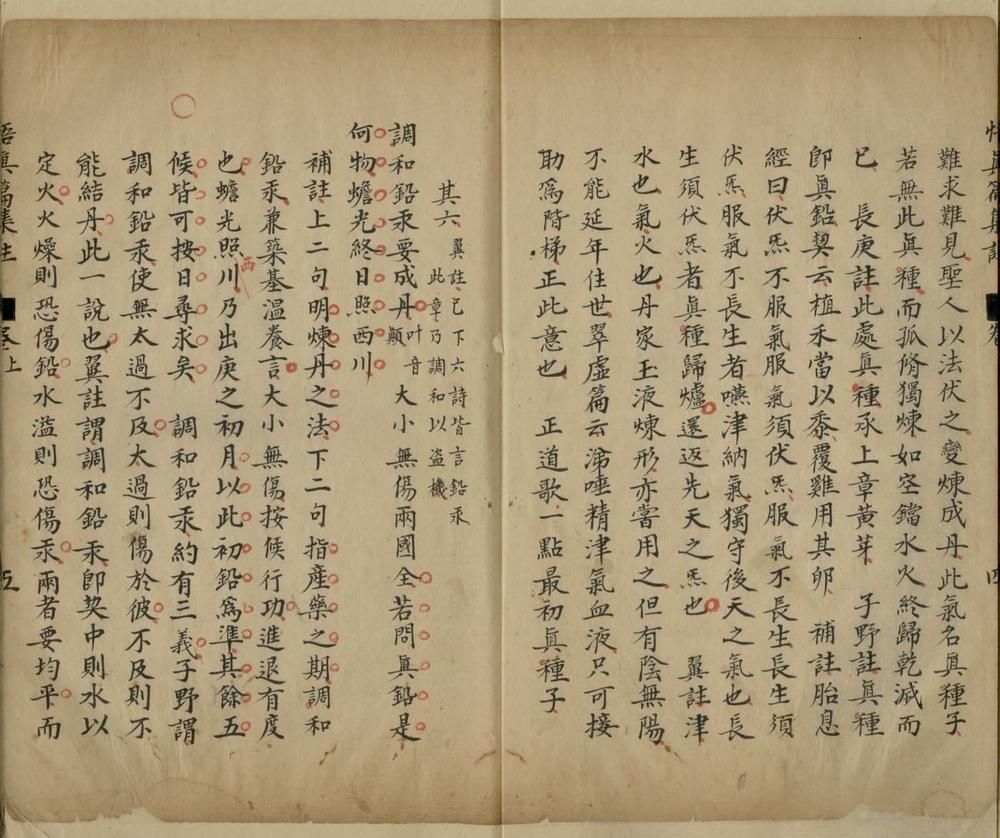 難求難見聖人以法伏之變煉成丹此氣名眞種子
若無此眞種而孤脩獨煉如空鐺水火終歸乾減而
已　長庚註此處眞種承上章黄芽　子野註眞種
卽眞鉛契云植禾當以黍覆雞用其卵　補註胎息
經曰伏炁不服氣服氣須伏炁服氣不長生長生須
伏炁服氣不長生者嚥津納氣獨守後天之氣也長
生須伏炁者眞種歸爐還返先天之炁也　翼註津
水也氣火也丹家玉液煉形亦嘗用之但有陰無陽
不能延年住世翠虛篇云涕唾精津氣血液只可接
助爲階梯正此意也　正道歌一點最初眞種子
其六　翼註已下六詩皆言鉛汞
此章乃調和以盜機
調和鉛汞要成丹叶音顚大小無傷兩國全若問眞鉛是
何物蟾光終日照西川
補註上二句明煉丹之法下二句指産藥之期調和
鉛汞兼築基溫養言大小無傷按候行功進退有度
也蟾光照西川乃出庚之初月以此初鉛爲準其餘五
候皆可按日尋求矣　調和鉛汞約有三義子野謂
調和鉛汞使無太過不及太過則傷於彼不及則不
能結丹此一說也翼註謂調和鉛汞卽契中則水以
定火火燥則恐傷鉛水溢則恐傷汞兩者要均平而
悟眞篇集註
卷上
五